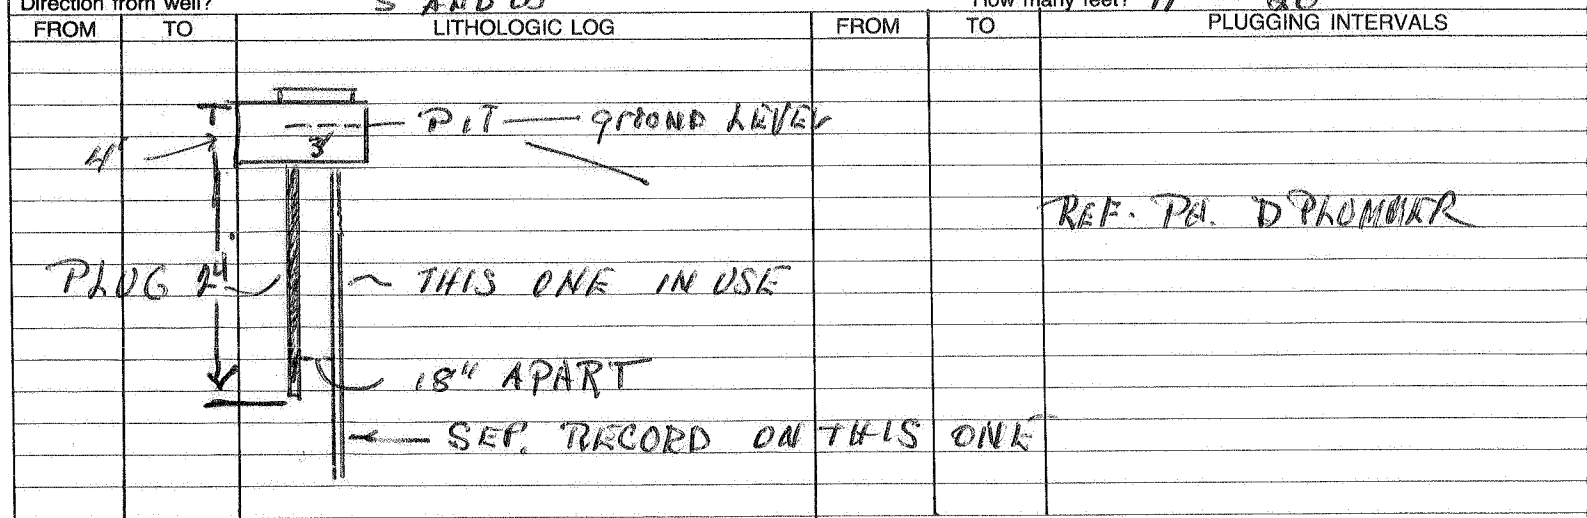 Direction from well? S AND W How many feet?
FROM TO LITHOLOGIC LOG FROM TO PLUGGING INTERVALS
PIT GROUND LEVEL
4' 3'
REF. PH. D PLUMMER
PLUG 24 THIS ONE IN USE
18" APART
SEP. RECORD ON THIS ONE